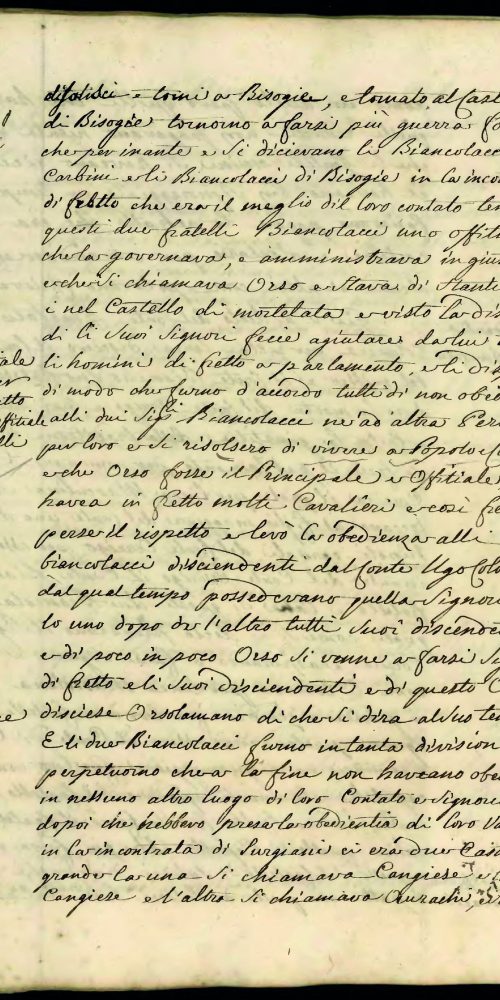 e torni a Bisogie, e tornato al Cast
di Bisogie tornorno a farsi più guerra
che per inante e si dicievano li Biancolacc
Carbini e li Biancolacci di Bisogie in la inco
di fretto che era il meglio dil loro contato te
questi due fratelli Biancolacci uno offita
che la governava, e amministrava in giu
e che si chiamava Orso e stava di stanti
i nel Castello di mortelata e visto la dis
di li suoi signori fecie agiutare da lui
iale li homini di fretto a parlamento, e li di
di modo che furno d'accordo tutti di non obe
alli dui Sig.ri Biancolacci ne ad altra Per
per loro e si risolsero di vivere a Popolo
e che Orso fosse il Principale e Offitiale
havea in fretto molti Cavalieri e così fre
perse il rispetto e levò la obedienza alli
biancolacci disciendenti dal Conte Ugo Colo
dal qual tempo possedevano quella Signori
lo uno dopo de l'altro tutti suoi discende
e di poco in poco Orso si venne a farsi S
di fretto e li suoi disciendenti e di questo
disciese Orsolamano di che si dira al suo te
E li due Biancolacci furno in tanta division
perpetuorno che a la fine non haveano obe
in nessuno altro luogo di loro Contato e Signor
dopoi che hebbero presa la obedientia di loro
in la incontrata di Surgiani ci era due Cas
grande la una si chiamava Cangiese e
Cangiese e l'altra si chiamava Aurachi,